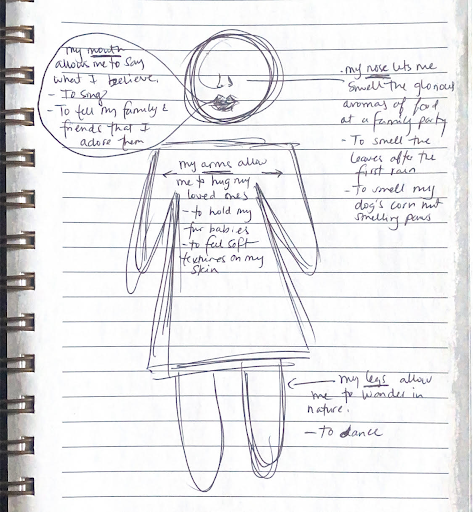 my mouth
allows me to say
what I believe.
- To sing
- To tell my family &
friends that I
adore them
my nose lets me
smell the glorious
aromas of food
at a family party
- To smell the
leaves after the
first rain
- To smell my
dog's corn nut
smelling paws
my arms allow
me to hug my
loved ones
- to hold my
fur babies
- to feel soft
textures on my
skin
my legs allow
me to wander in
nature.
- To dance